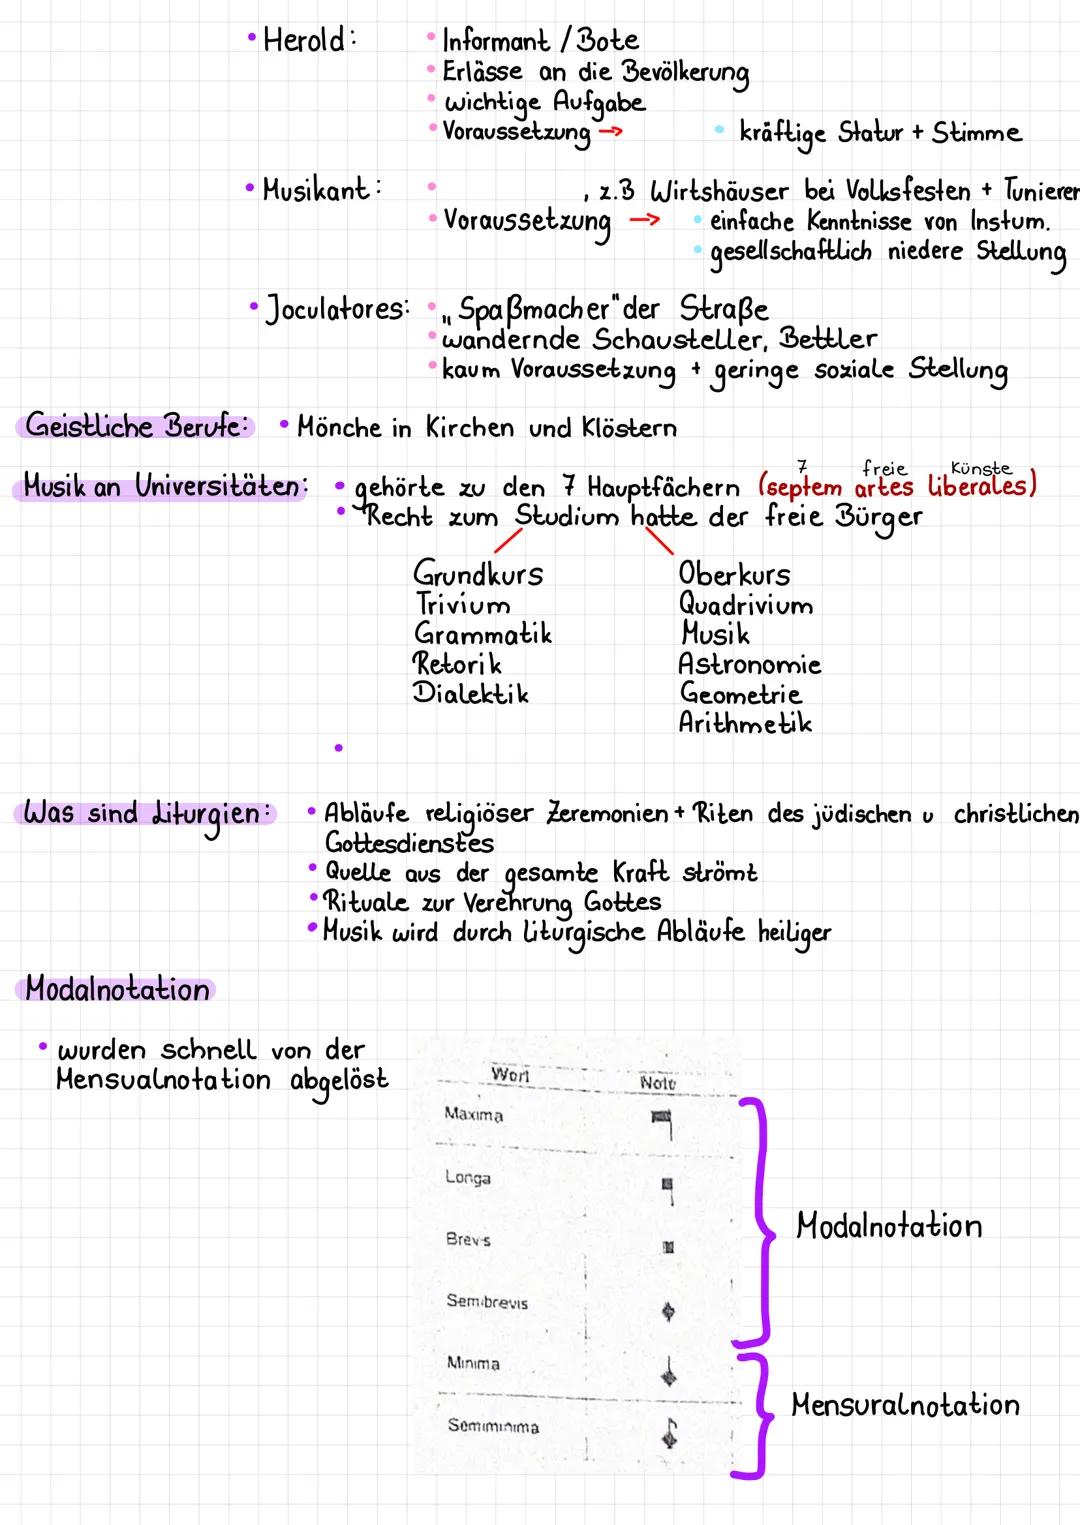 • Herold: • Informant / Bote
• Erlässe an die Bevölkerung
• wichtige Aufgabe
• Voraussetzung → • kräftige Statur + Stimme
• Musikant: • , z.B Wirtshäuser bei Volksfesten + Tunieren
• Voraussetzung → • einfache Kenntnisse von Instum.
• gesellschaftlich niedere Stellung
• Joculatores: • „Spaßmacher" der Straße
• wandernde Schausteller, Bettler
• kaum Voraussetzung + geringe soziale Stellung
Geistliche Berufe: • Mönche in Kirchen und Klöstern
7 freie Künste
Musik an Universitäten: • gehörte zu den 7 Hauptfächern (septem artes liberales)
• Recht zum Studium hatte der freie Bürger
Grundkurs Oberkurs
Trivium Quadrivium
Grammatik Musik
Retorik Astronomie
Dialektik Geometrie
Arithmetik
•
Was sind Liturgien: • Abläufe religiöser Zeremonien + Riten des jüdischen u christlichen
Gottesdienstes
• Quelle aus der gesamte Kraft strömt
• Rituale zur Verehrung Gottes
• Musik wird durch liturgische Abläufe heiliger
Modalnotation
• wurden schnell von der
Mensualnotation abgelöst
Wort Note
Maxima
Longa
Brevis
Semibrevis
Minima
Semiminima
Modalnotation
Mensuralnotation